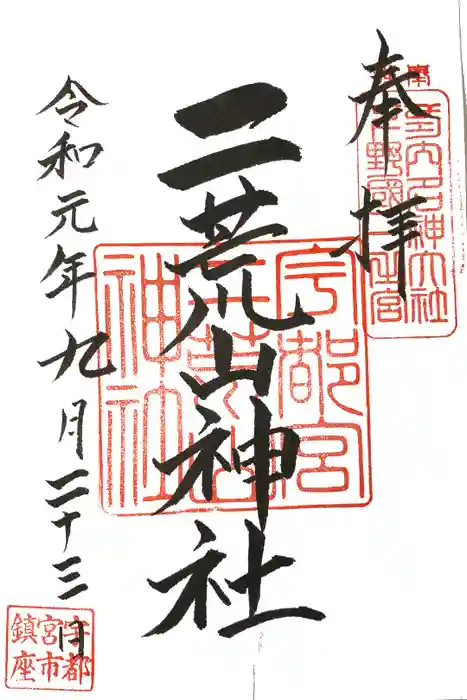 奉拝
二荒山神社
令和元年九月二十三日
宇都宮
二荒山
神社
延喜式内名神大社
下野國一之宮
宇都
宮市
鎮座